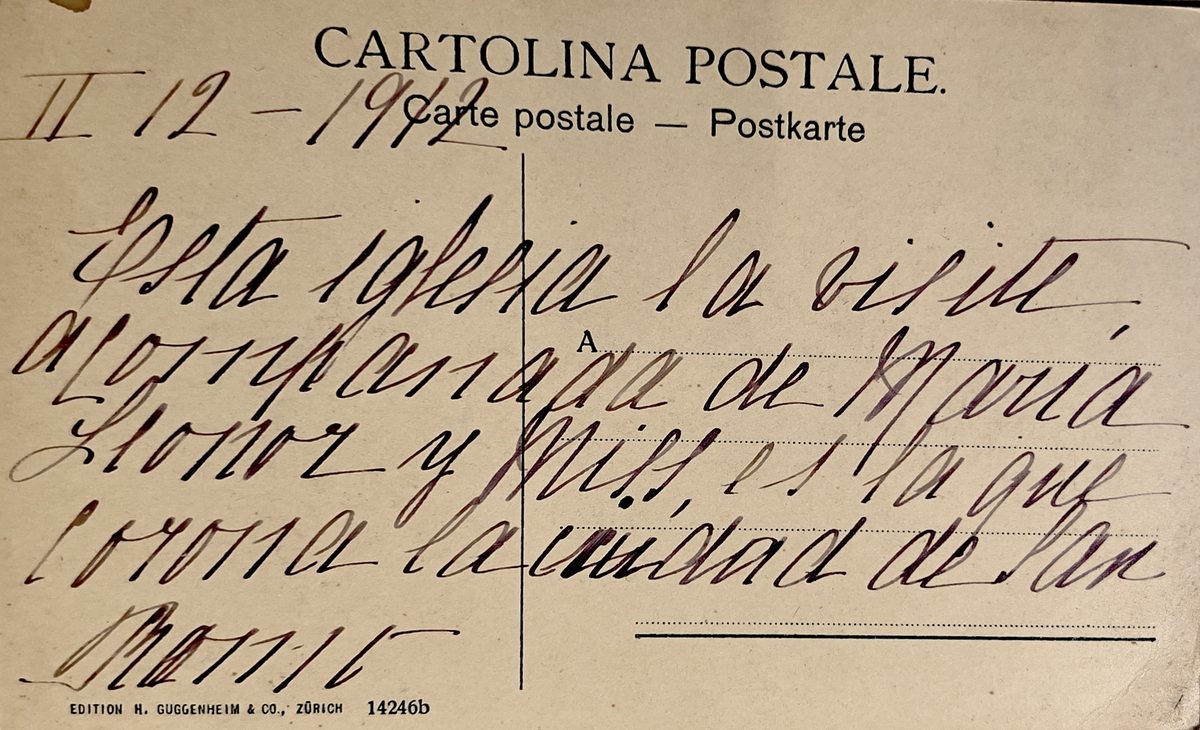 CARTOLINA POSTALE.
II 12 - 1912
Carte postale — Postkarte
Esta iglesia la visite,
acompanada de Maria
A
Leonor y Miss, es la que
corona la ciudad de San
Remo
EDITION H. GUGGENHEIM & CO., ZÜRICH 14246b